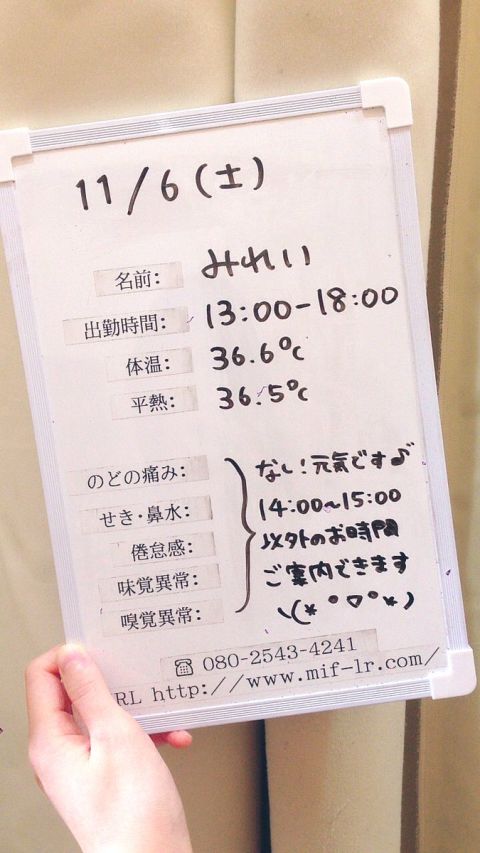 11/6(土)
名前: みれい
出勤時間: 13:00-18:00
体温: 36.6℃
平熱: 36.5℃
のどの痛み: ない!元気です♪
せき・鼻水: 14:00~15:00
倦怠感: 以外のお時間
味覚異常: ご案内できます
嗅覚異常: \(*°▽°*)
☎ 080-2543-4241
RL http://www.mif-lr.com/